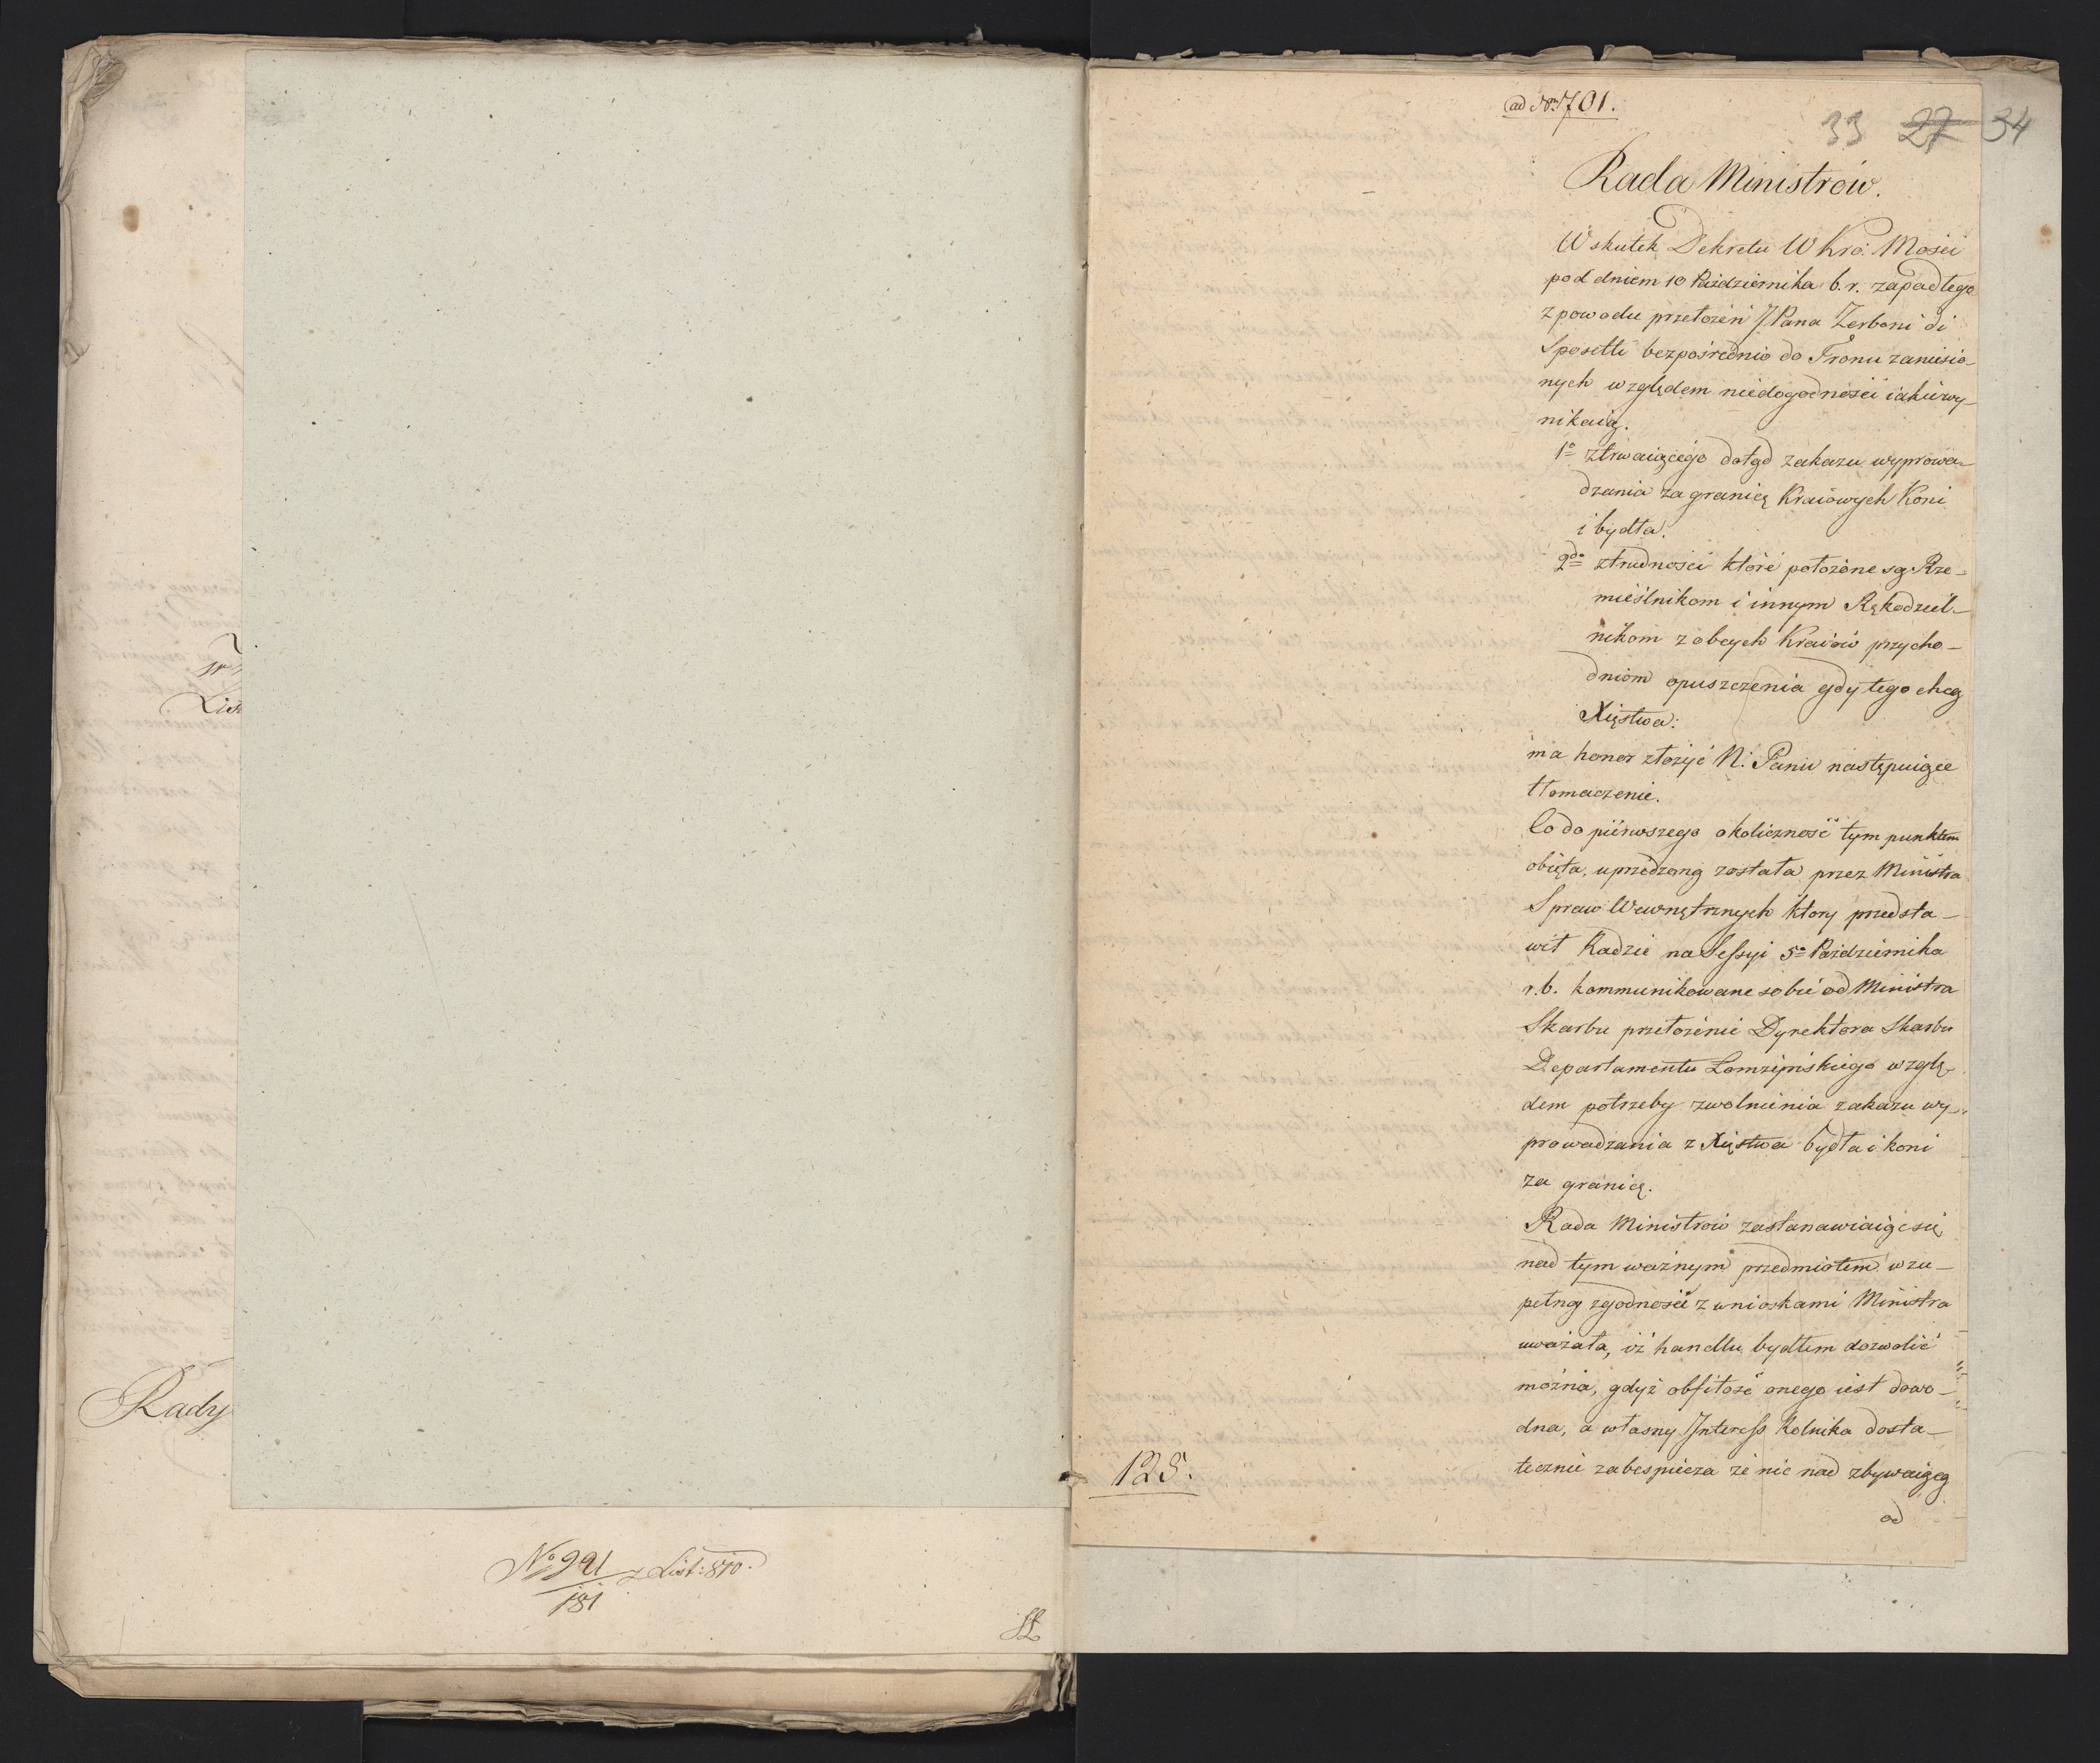 Rady
No 991 z List: 810.
181
ad Nrm 701.
33 27 34
Rada Ministrów.
W skutek Dekretu W Kró: Mości
pod dniem 10 Października b. r. zapadłego
z powodu przełożeń JPana Zerboni di
Sposetti bezpośrednio do Tronu zaniesio-
nych względem niedogodności iakie wy-
nikaią.
1o z trwaiącego dotąd zakazu wyprowa-
dzania za granicę Kraiowych Koni
i bydła.
2do z trudności które położone są Rze-
mieślnikom i innym Rękodziel-
nikom z obcych Kraiów przycho-
dniom opuszczenia gdy tego chcą
Xięstwa:
ma honor złożyć N. Panu następuiące
tłomaczenie.
Co do pierwszego okoliczność tym punktem
obięta, uprzedzoną została przez Ministra
Spraw Wewnętrznych ktory przedsta-
wił Radzie na Sessyi 5o Października
r. b. kommunikowane sobie od Ministra
Skarbu przełożenie Dyrektora Skarbu
Departamentu Łomżyńskiego wzglę-
dem potrzeby zwolnienia zakazu wy-
prowadzania z Xięstwa bydła i koni
za granicę.
Rada Ministrów zastanawiaiąc się
nad tym ważnym przedmiotem w zu-
pełnej zgodności z wnioskami Ministra
uważała, iż handlu bydłem dozwolić
można, gdyż obfitość onego iest dowo-
dna, a własny Interess Rolnika dosta-
tecznie zabespiecza że nic nad zbywaiącą
od
125.